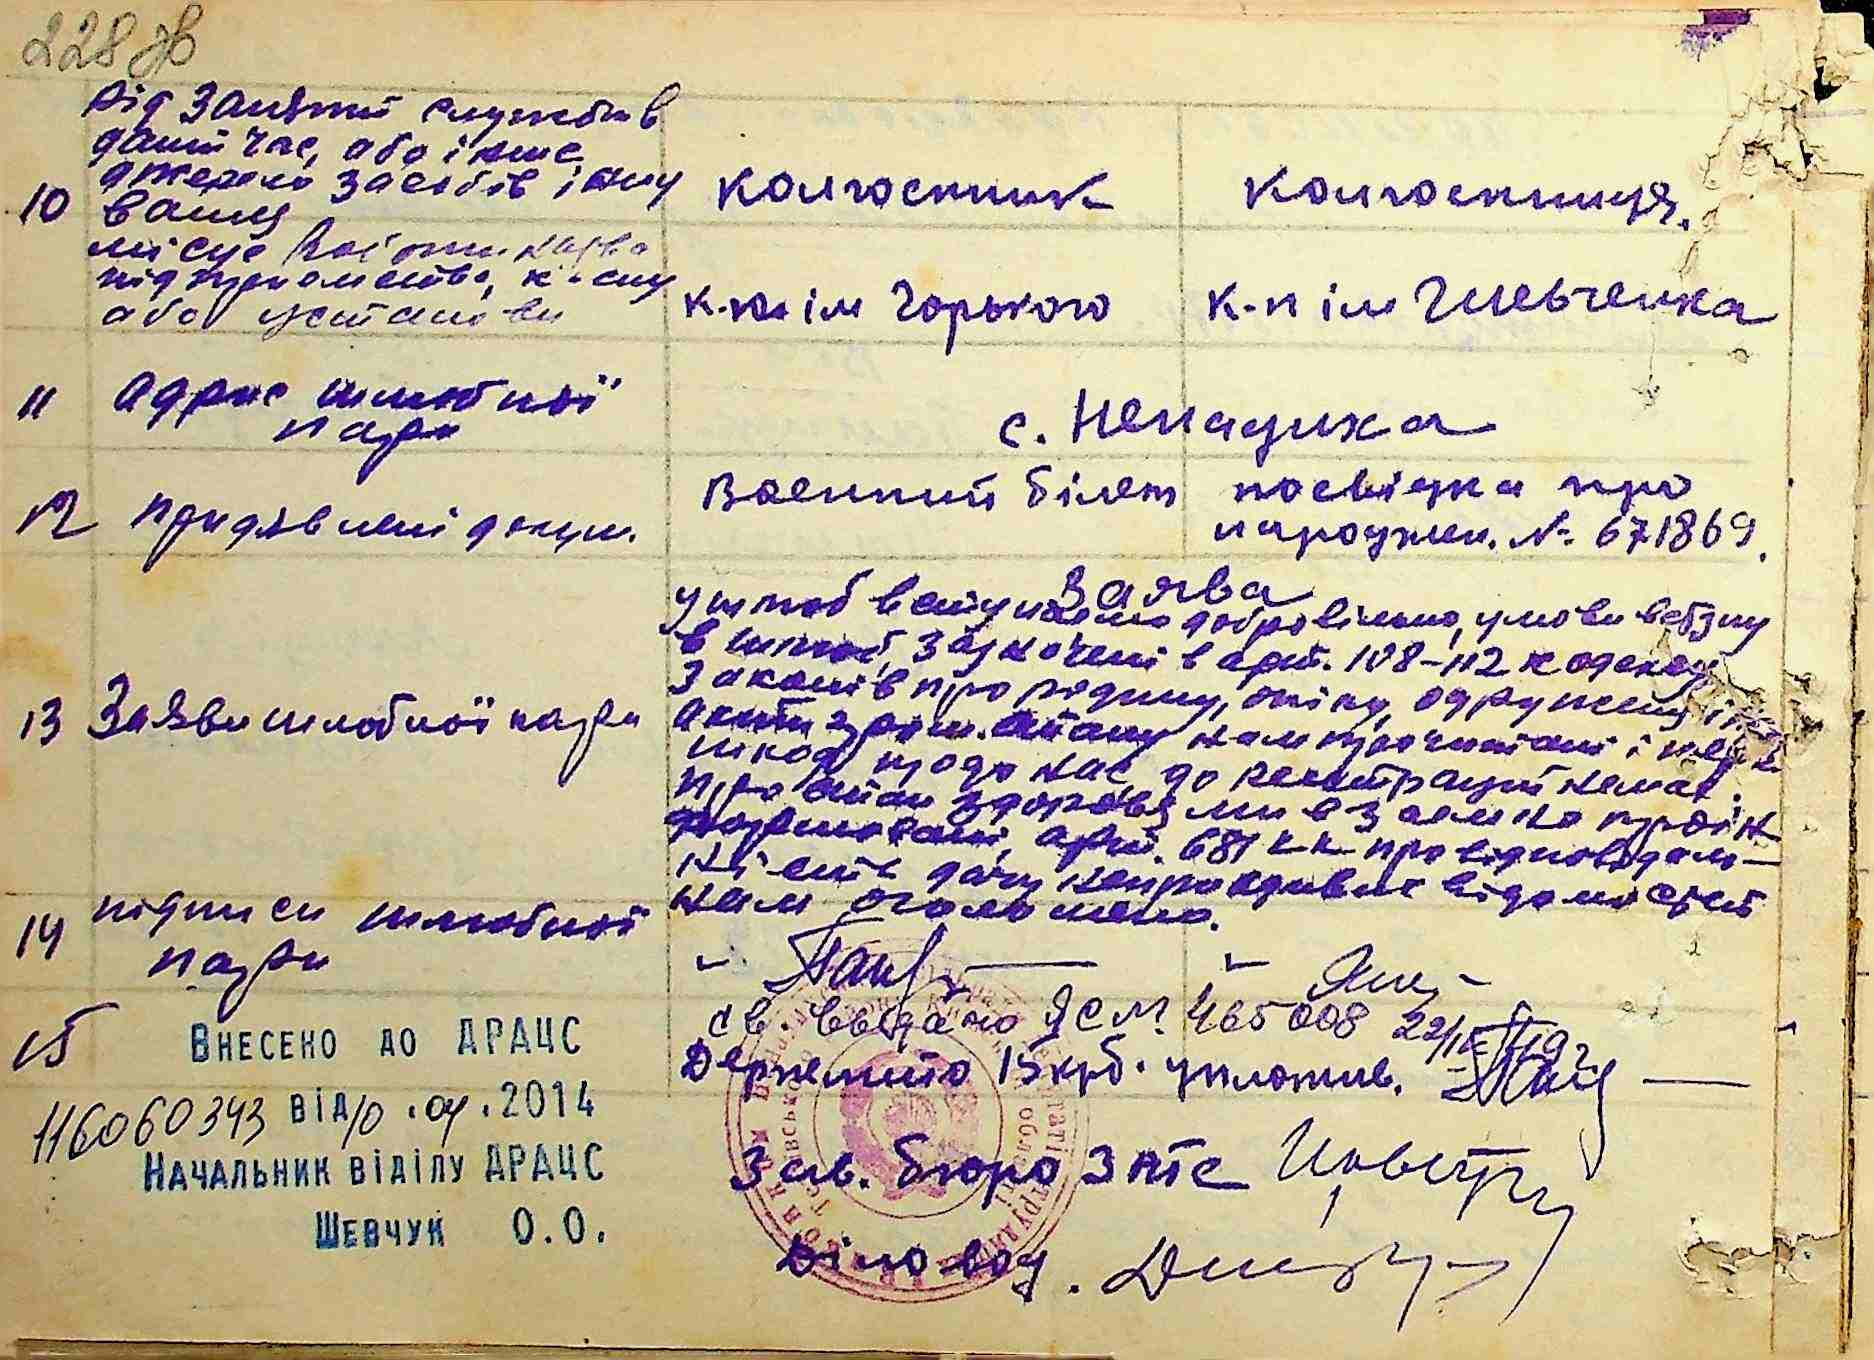 228 зв
Рід занятий служби в
даний час, або інше
джерело засобів існу
10 вання колгоспник колгоспниця.
місце роботи назва
підприємства, к-спу к-п ім Горького к-п ім Шевченка
або установи
11 Адрес шлюбної
пари с. Ненадиха
12 Придявлені докум. Военний білет посвідка про
народжен. № 671869.
Заява
у шлюб вступаємо добровільно, умови вступу
в шлюб, зазначені в арт. 108-112 кодексу
законів про родину, опіку, одруження і
13 Заяви шлюбної пари акти гром. стану нам прочитані і
шкод щодо нас до реєстрації немає.
Про стан здоровья ми взаємно проін
формовані, арт. 681 к.к про відповідаль-
ність дачу неправдивих відомостей
нам оголошено.
14 підписи шлюбної
пари
15 св. видано ЯСМ. 465008 22/
Держмито 15 крб. уплотив.
Внесено до ДРАЦС
116060343 від 10.04.2014
Начальник віділу ДРАЦС
Шевчук О.О.
Зав. бюро ЗАГС
Діловод.